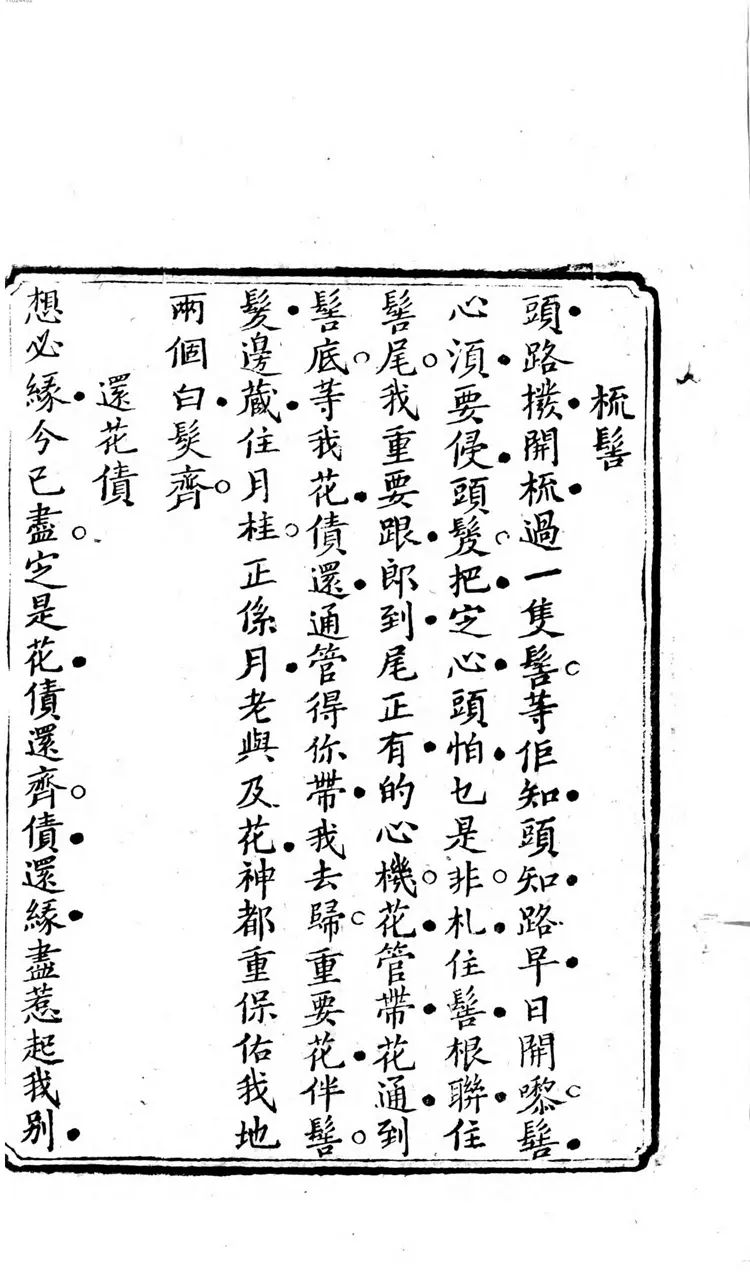 梳髻
頭路撥開梳過一隻髻等佢知頭知路早日開嚟髻
心須要侵頭髮把定心頭怕乜是非札住髻根聯住
髻尾我重要跟郎到尾正有的心機花管帶花通到
髻底等我花債還通管得你帶我去歸重要花伴髻
髮邊藏住月桂正係月老與及花神都重保佑我地
兩個白髮齊
還花債
想必緣今已盡定是花債還齊債還緣盡惹起我別